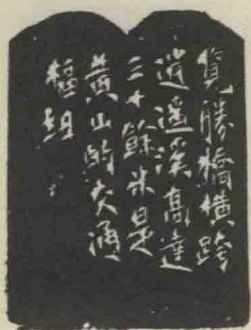 覽勝橋橫跨
逍遙溪高達
三十餘米是
黃山的交通
樞紐